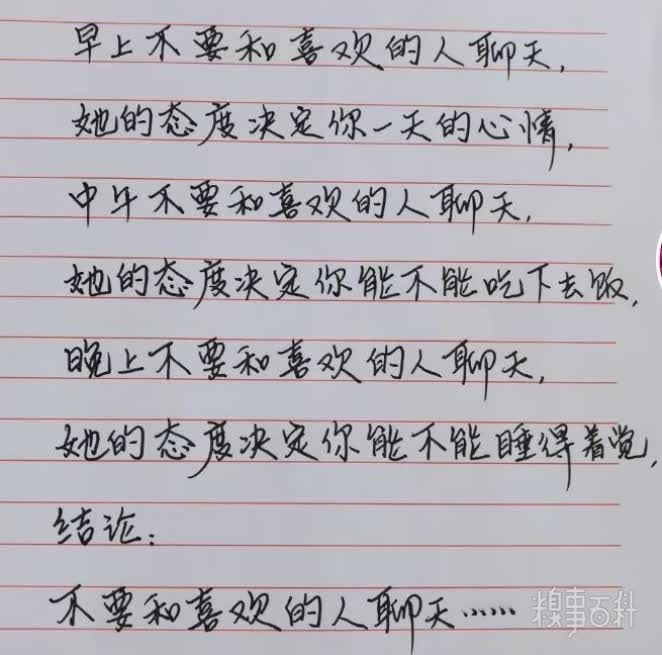 早上不要和喜欢的人聊天,
她的态度决定你一天的心情,
中午不要和喜欢的人聊天,
她的态度决定你能不能吃下去饭,
晚上不要和喜欢的人聊天,
她的态度决定你能不能睡得着觉,
结论:
不要和喜欢的人聊天……
糗事百科